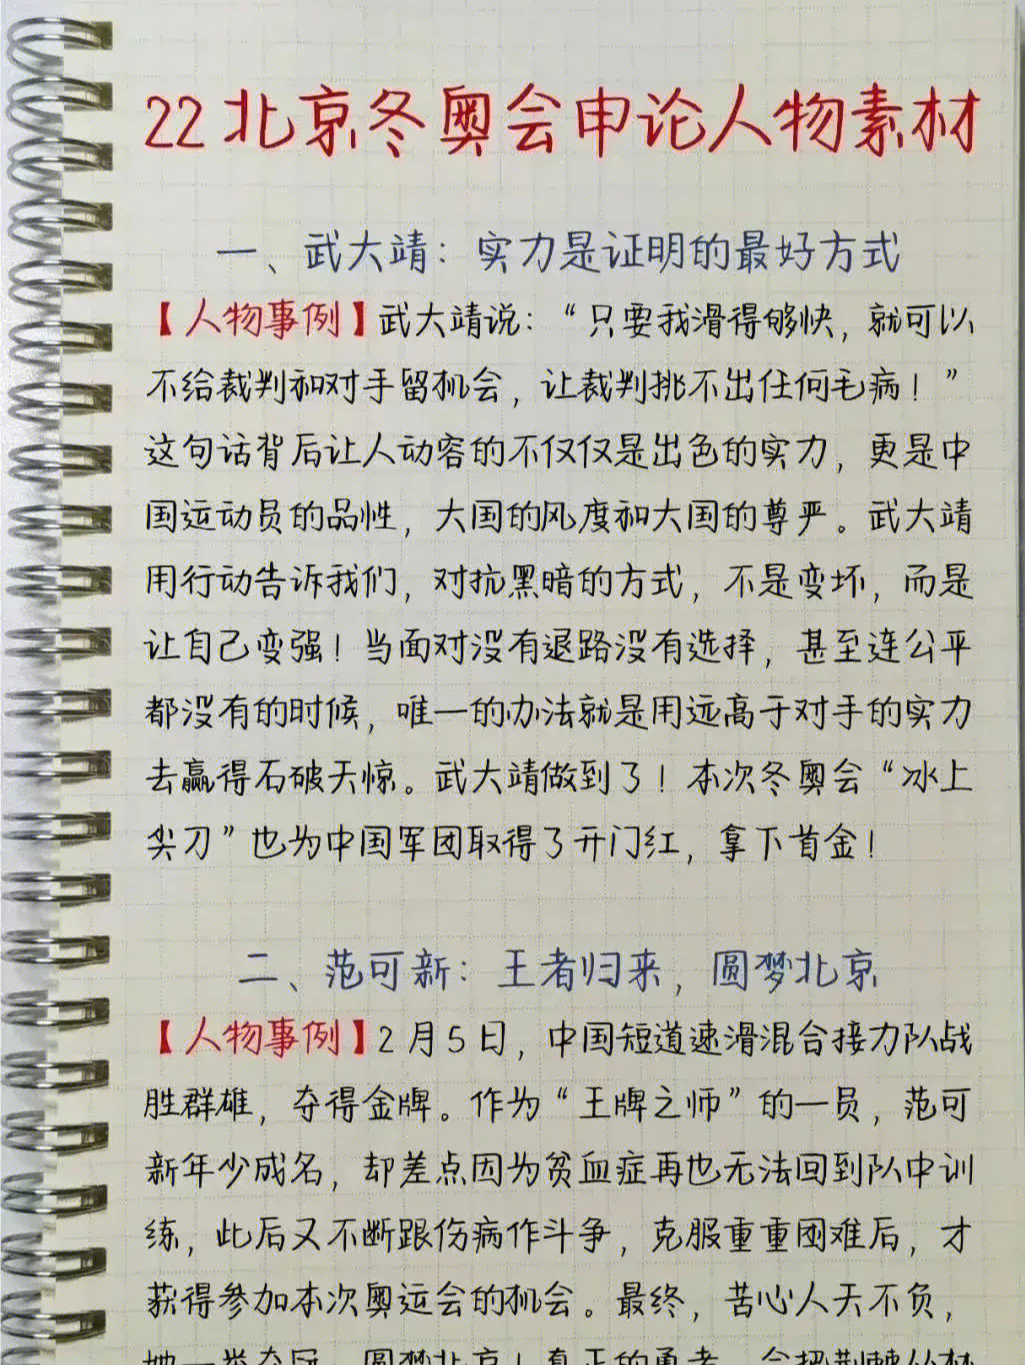 22北京冬奥会申论人物素材
一、武大靖：实力是证明的最好方式
【人物事例】武大靖说：“只要我滑得够快，就可以
不给裁判和对手留机会，让裁判挑不出任何毛病！”
这句话背后让人动容的不仅仅是出色的实力，更是中
国运动员的品性，大国的风度和大国的尊严。武大靖
用行动告诉我们，对抗黑暗的方式，不是变坏，而是
让自己变强！当面对没有退路没有选择，甚至连公平
都没有的时候，唯一的办法就是用远高于对手的实力
去赢得石破天惊。武大靖做到了！本次冬奥会“冰上
尖刀”也为中国军团取得了开门红，拿下首金！
二、范可新：王者归来，圆梦北京
【人物事例】2月5日，中国短道速滑混合接力队战
胜群雄，夺得金牌。作为“王牌之师”的一员，范可
新年少成名，却差点因为贫血症再也无法回到队中训
练，此后又不断跟伤病作斗争，克服重重困难后，才
获得参加本次奥运会的机会。最终，苦心人天不负，
她一举夺冠，圆梦北京！真正的勇者，会把荆棘丛林